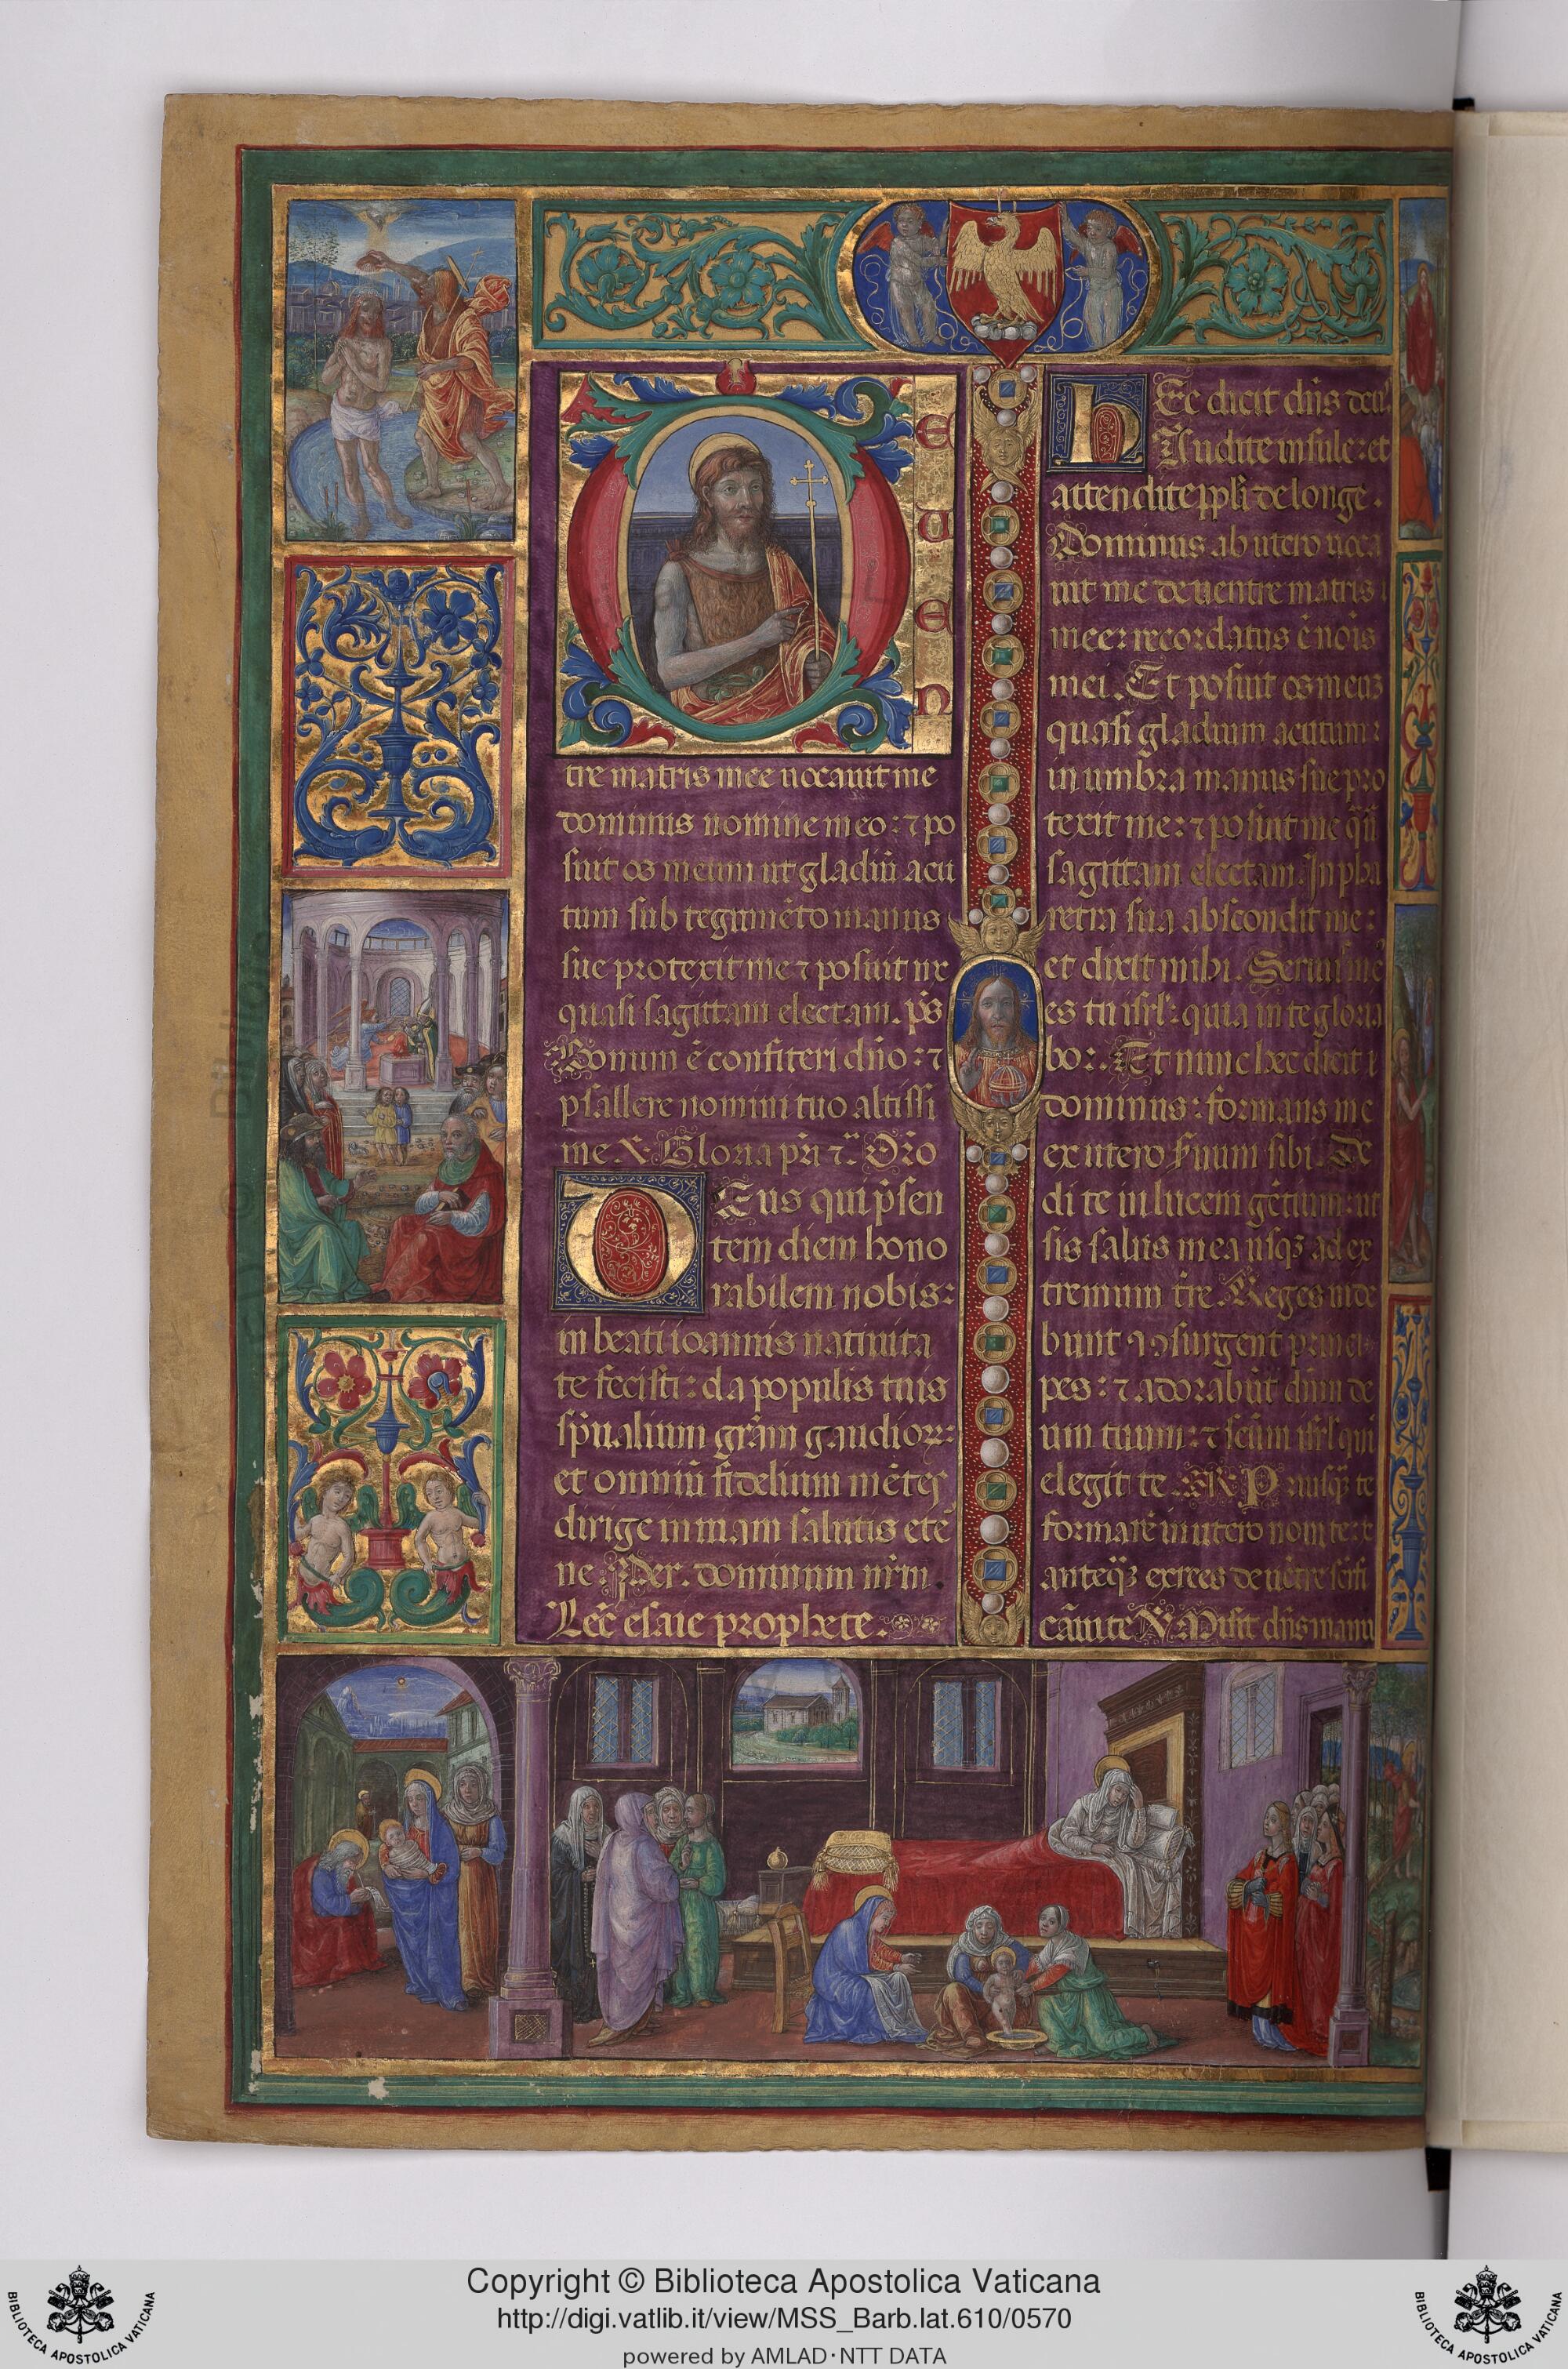 D
E
U
E
N
tre matris mee uocauit me
dominus nomine meo: ⁊ po
suit os meum ut gladiũ acu
tum sub tegumẽto manus
sue protexit me ⁊ posuit me
quasi sagittam electam. p̃s
Bonum ẽ confiteri dño: ⁊
psallere nomini tuo altissi
me. V. Gloria pr̃i ⁊c̃. Or̃o
DEus qui p̃sen
tem diem hono
rabilem nobis:
in beati ioannis natiuita
te fecisti: da populis tuis
sp̃ualium gr̃am gaudioꝝ:
et omniũ fidelium mẽtes
dirige in uiam salutis etẽ
ne Per. dominum nr̃m.
Lec̃ esaie prophete.
hEc dicit dñs deus
Audite insule: et
attendite ppl̃i de longe.
Dominus ab utero uoca
uit me de uentre matris
mee: recordatus ẽ noĩs
mei. Et posuit os meuʒ
quasi gladium acutum:
in umbra manus sue pro
texit me: ⁊ posuit me
sagittam electam. In pha
retra sua abscondit me:
et dixit mihi. Seruus me
es tu isrl̃: quia in te gloria
bor. Et nunc hec dicit
dominus: formans me
ex utero seruum sibi. De
di te in lucem gẽtium: ut
sis salus mea usqʒ ad ex
tremum tr̃e. Reges uide
bunt ⁊ ꝯsurgent princi-
pes: ⁊ adorabũt dñm de
um tuum: ⁊ scũm isrl̃ qui
elegit te. R. Priusqʒ te
formarẽ in utero noui te: ⁊
anteqʒ exires de uẽtre scĩfi
caui te V. Misit dñs manũ
Copyright © Biblioteca Apostolica Vaticana
http://digi.vatlib.it/view/MSS_Barb.lat.610/0570
powered by AMLAD·NTT DATA
BIBLIOTECA APOSTOLICA VATICANA
BIBLIOTECA APOSTOLICA VATICANA